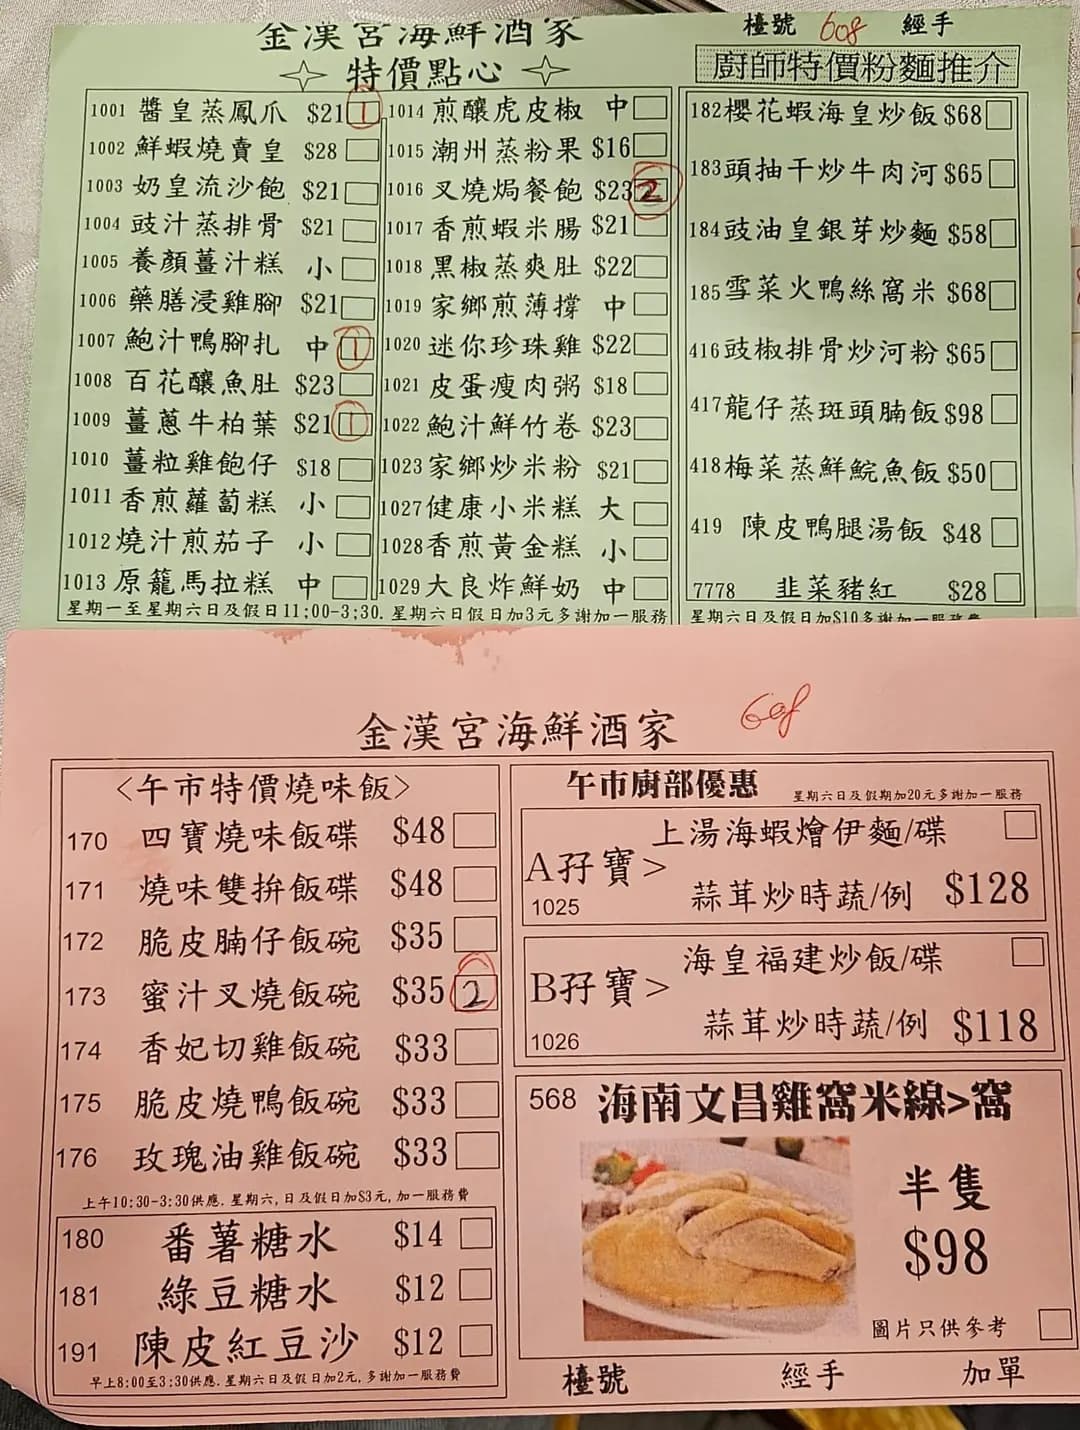 金漢宮海鮮酒家
檯號 608 經手
特價點心
廚師特價粉麵推介
1001 醬皇蒸鳳爪 $21 1
1002 鮮蝦燒賣皇 $28
1003 奶皇流沙飽 $21
1004 豉汁蒸排骨 $21
1005 養顏薑汁糕 小
1006 藥膳浸雞腳 $21
1007 鮑汁鴨腳扎 中 1
1008 百花釀魚肚 $23
1009 薑蔥牛柏葉 $21 1
1010 薑粒雞飽仔 $18
1011 香煎蘿蔔糕 小
1012 燒汁煎茄子 小
1013 原籠馬拉糕 中
1014 煎釀虎皮椒 中
1015 潮州蒸粉果 $16
1016 叉燒焗餐飽 $23 2
1017 香煎蝦米腸 $21
1018 黑椒蒸爽肚 $22
1019 家鄉煎薄撐 中
1020 迷你珍珠雞 $22
1021 皮蛋瘦肉粥 $18
1022 鮑汁鮮竹卷 $23
1023 家鄉炒米粉 $21
1027 健康小米糕 大
1028 香煎黃金糕 小
1029 大良炸鮮奶 中
星期一至星期六日及假日11:00-3:30. 星期六日假日加3元多謝加一服務
182 櫻花蝦海皇炒飯 $68
183 頭抽干炒牛肉河 $65
184 豉油皇銀芽炒麵 $58
185 雪菜火鴨絲窩米 $68
416 豉椒排骨炒河粉 $65
417 龍仔蒸斑頭腩飯 $98
418 梅菜蒸鮮鯇魚飯 $50
419 陳皮鴨腿湯飯 $48
7778 韭菜豬紅 $28
星期六日及假日加$10多謝加一服務費
金漢宮海鮮酒家 608
<午市特價燒味飯>
170 四寶燒味飯碟 $48
171 燒味雙拚飯碟 $48
172 脆皮腩仔飯碗 $35
173 蜜汁叉燒飯碗 $35 2
174 香妃切雞飯碗 $33
175 脆皮燒鴨飯碗 $33
176 玫瑰油雞飯碗 $33
上午10:30-3:30供應. 星期六,日及假日加$3元, 加一服務費
180 番薯糖水 $14
181 綠豆糖水 $12
191 陳皮紅豆沙 $12
早上8:00至3:30供應. 星期六日及假日加2元, 多謝加一服務費
午市廚部優惠 星期六日及假期加20元多謝加一服務
上湯海蝦燴伊麵/碟
A孖寶>
1025 蒜茸炒時蔬/例 $128
海皇福建炒飯/碟
B孖寶>
1026 蒜茸炒時蔬/例 $118
568 海南文昌雞窩米線>窩
半隻
$98
圖片只供參考
檯號 經手 加單